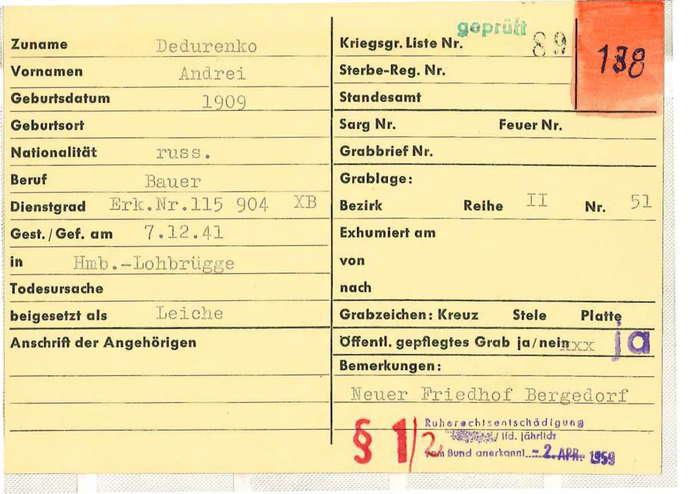 geprüft
Zuname Dedurenko
Vornamen Andrei
Geburtsdatum 1909
Geburtsort
Nationalität russ.
Beruf Bauer
Dienstgrad Erk.Nr.115 904 XB
Gest./Gef. am 7.12.41
in Hmb.-Lohbrügge
Todesursache
beigesetzt als Leiche
Anschrift der Angehörigen
Kriegsgr. Liste Nr. 89
138
Sterbe-Reg. Nr.
Standesamt
Sarg Nr. Feuer Nr.
Grabbrief Nr.
Grablage:
Bezirk Reihe II Nr. 51
Exhumiert am
von
nach
Grabzeichen: Kreuz Stele Platte
Öffentl. gepflegtes Grab ja/nein xxx ja
Bemerkungen:
Neuer Friedhof Bergedorf
§ 1/2
Ruherechtsentschädigung
/ lfd. jährlich
vom Bund anerkannt - 2. APR. 1959